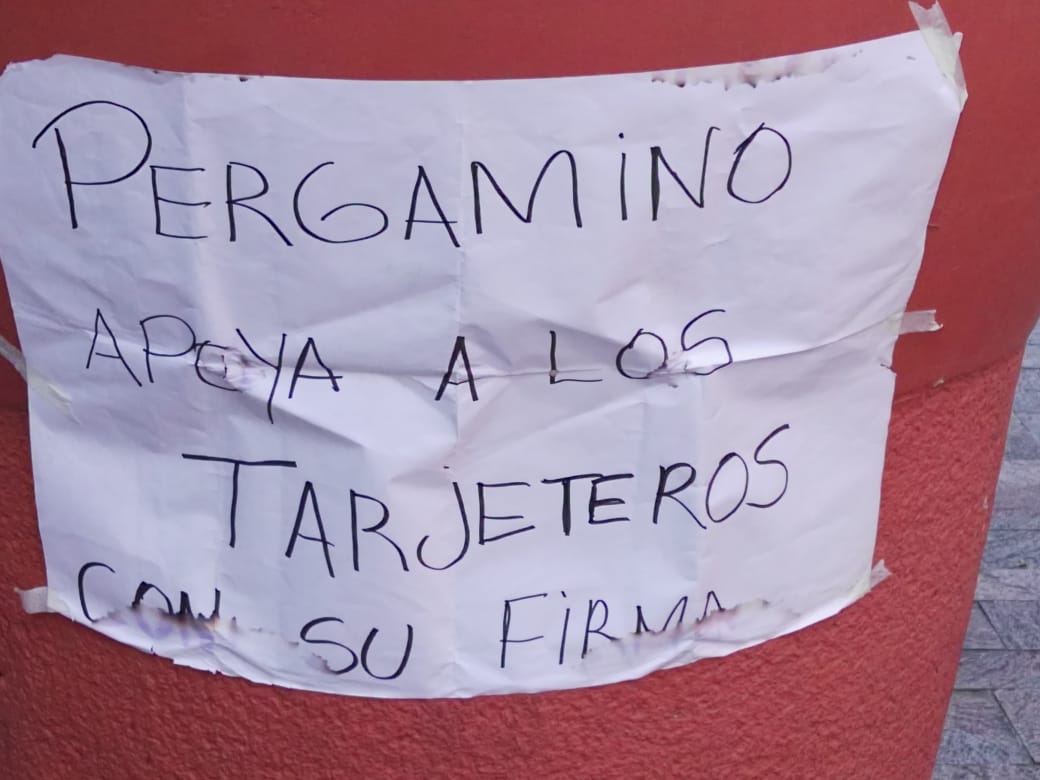 PERGAMINO
APOYA A LOS
TARJETEROS
CON SU FIRMA